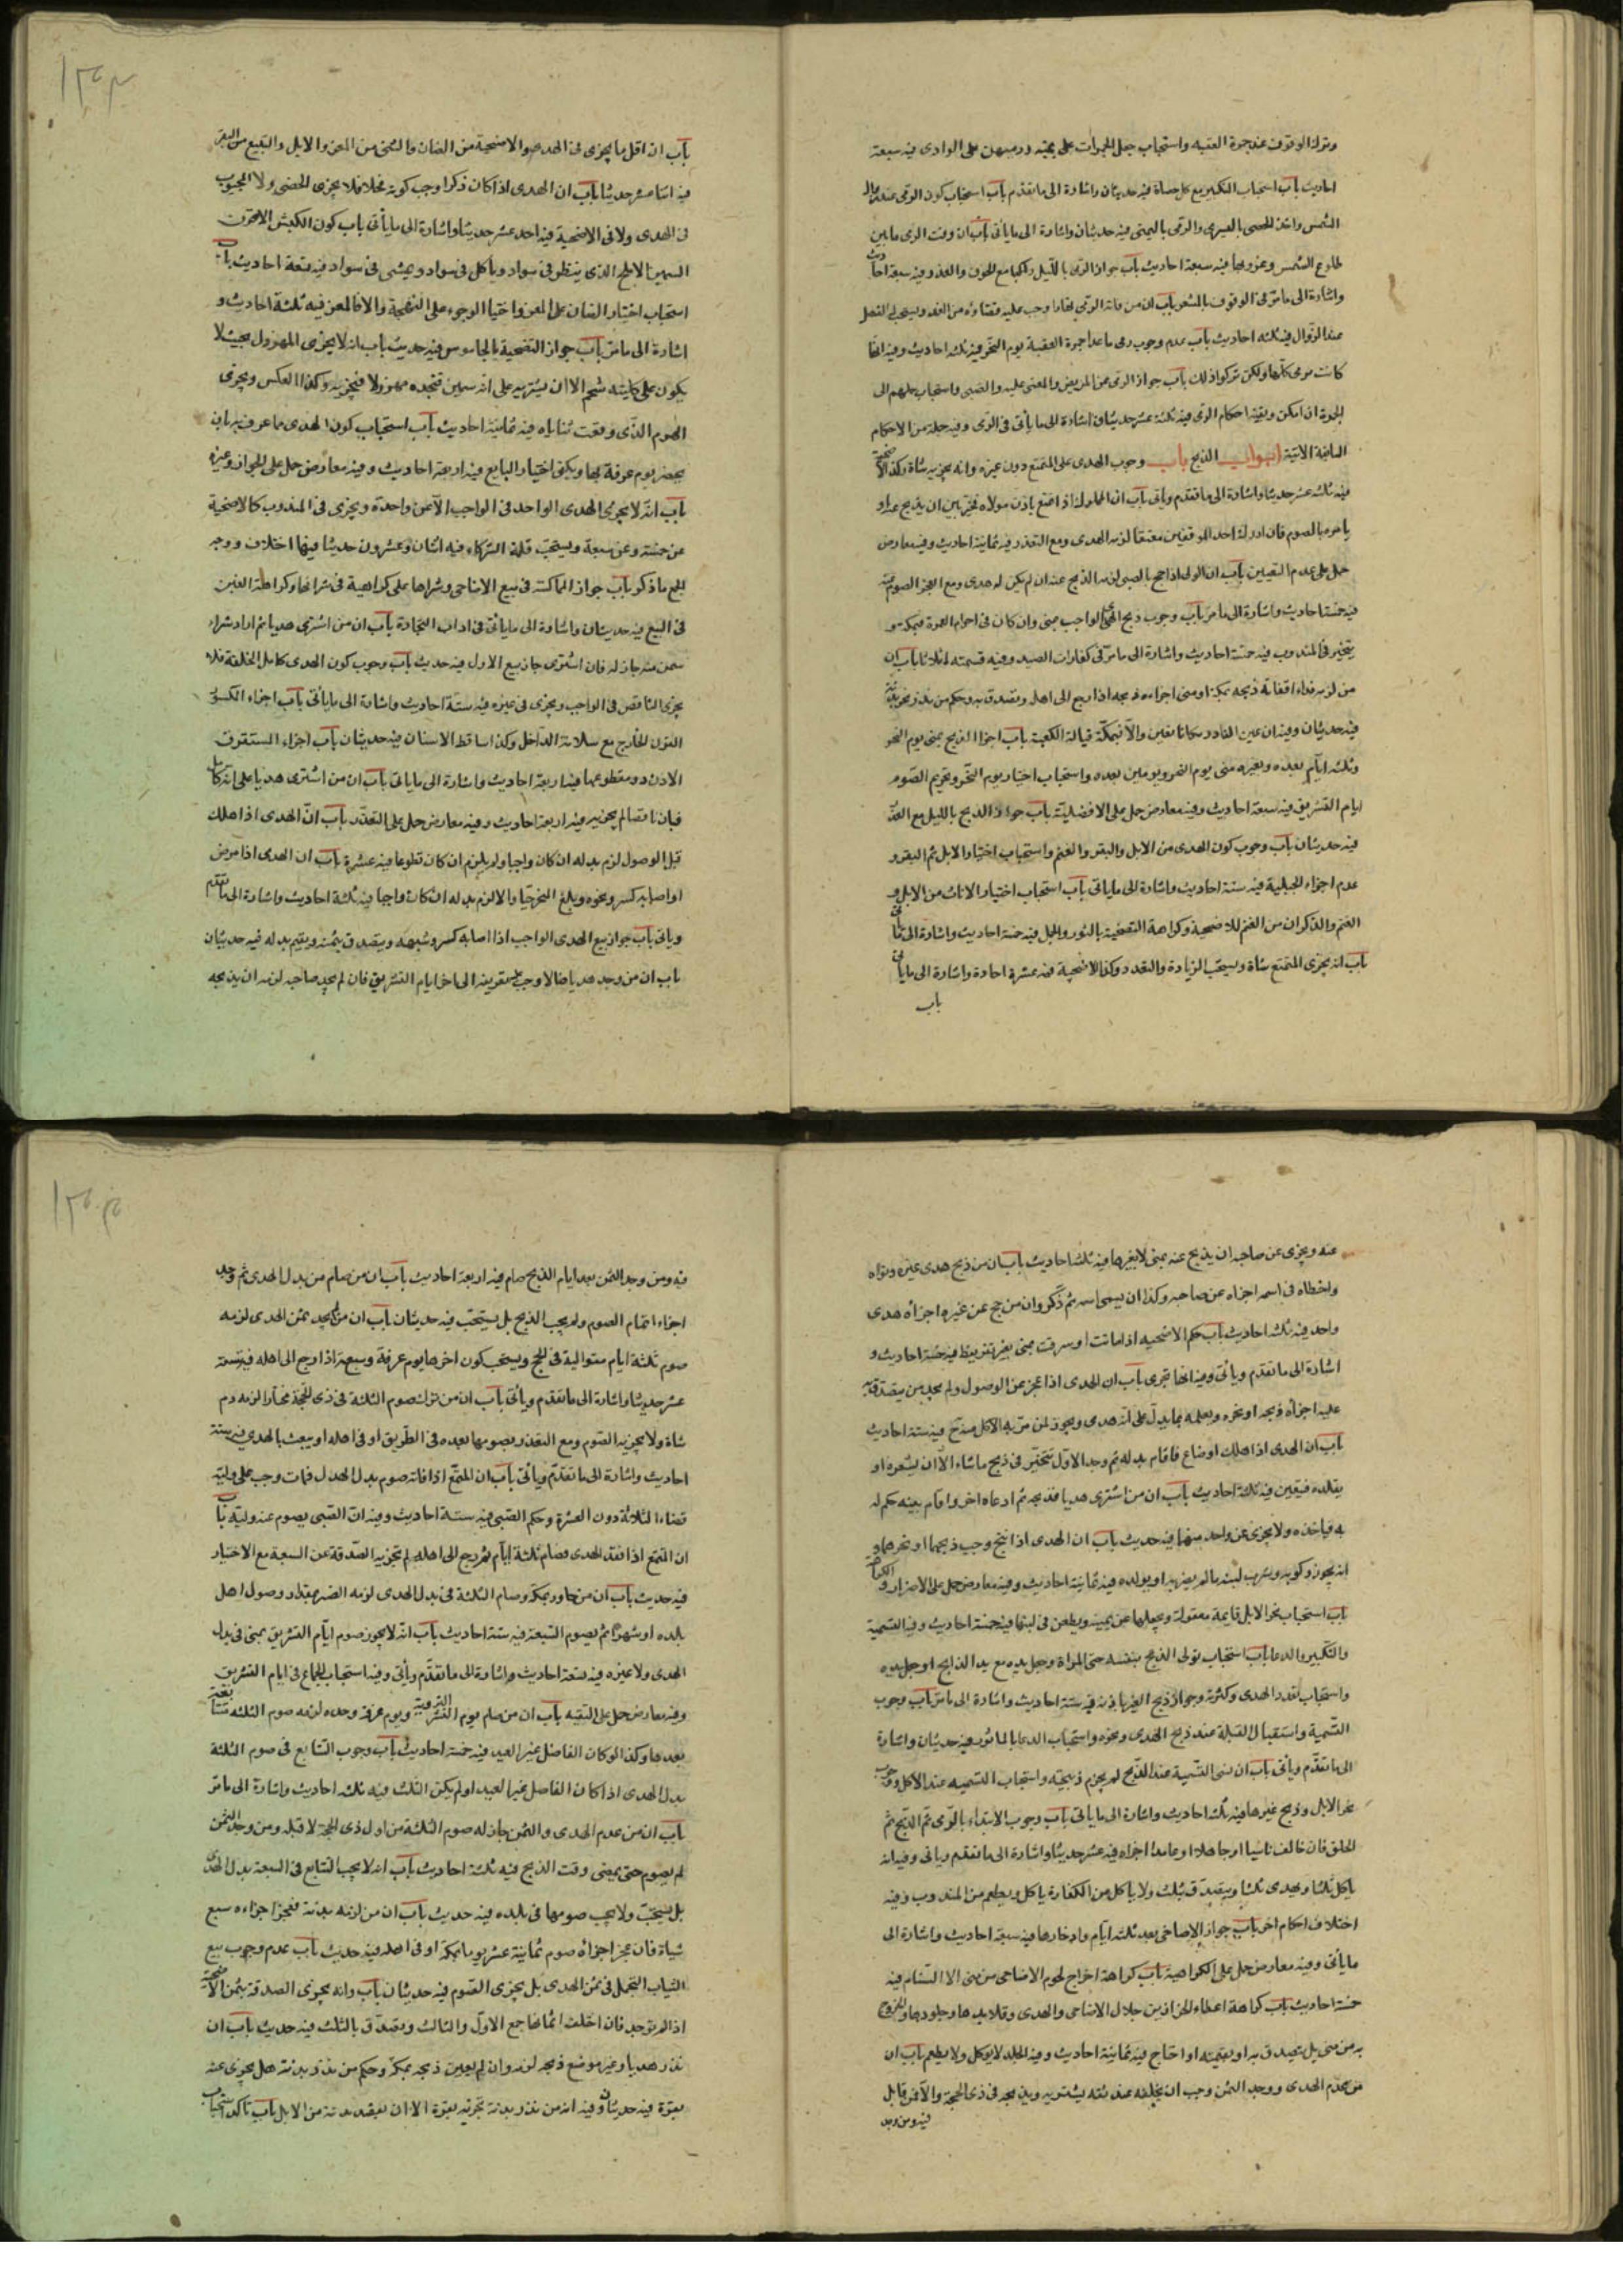 وترك الوقوف عند جمرة العقبة واستحباب جعل الجمرات على يمينه ورميهن على الوادى فيه سبعة
احاديث باب استحباب التكبير مع كل حصاة فيه حديثان واشارة الى ما تقدم باب استحباب كون الرمى عند زوال
الشمس واخذ الحصى باليسرى والرمى باليمنى فيه حديثان واشارة الى ما ياتى باب ان وقت الرمى ما بين
طلوع الشمس وغروبها فيه سبعة احاديث باب جواز الرمى بالليل راكبا مع الخوف والعذر وفيه سبعة احاديث
واشارة الى ما مر فى الوقوف بالمشعر باب ان من فاته الرمى نهارا وجب عليه قضاؤه من الغد ويستحب الفصل
عند الزوال فيه ثلثه احاديث باب عدم وجوب رمى ما عدا جمرة العقبة يوم النحر فيه ثلثه احاديث وفيه انها
كانت ترمى كلها ولكن تركوا ذلك باب جواز الرمى عن المريض والمغمى عليه والصبى واستحباب حملهم الى
الجمرة ان امكن وبقية احكام الرمى فيه ثلثة عشر حديثا واشارة الى ما يأتى فى الرمى وفيه جملة من الاحكام
السابقة الاتية ابواب الذبح باب وجوب الهدى على المتمتع دون غيره وانه يجزيه شاة وكذا الاضحية
فيه ثلثه عشر حديثا واشارة الى ما تقدم وياتى باب ان المملوك اذا تمتع باذن مولاه تخير بين ان يذبح عنه او
يامره بالصوم فان ادرك احد الموقفين معتقا لزمه الهدى ومع التعذر فيه ثمانية احاديث وفيه معارض
حمل على عدم التعيين باب ان الولى اذا حج بالصبى لزمه الذبح عنه ان لم يكن له هدى ومع العجز الصوم عنه
فيه خمسة احاديث واشارة الى ما مر باب وجوب ذبح الهدى الواجب بمنى وان كان فى احرام العمرة فبمكة هو
يتخير فى المندوب فيه خمسة احاديث واشارة الى ما مر فى كفارات الصيد وفيه قسمته اثلاثا باب ان
من لزمه فداء اذا فاته ذبحه بمكة او منى اجزاءه ذبحه اذا رجع الى اهله وتصدق به وحكم من نذر نحر بدنة
فيه حديثان وفيه ان عين الناذر مكانا تعين والا فبمكة قبالة الكعبة باب اجزاء الذبح بمنى يوم النحر
وثلثه ايام بعده وبغيره منى يوم النحر ويومين بعده واستحباب اختيار يوم النحر وتحريم الصوم
ايام التشريق فيه سبعة احاديث وفيه معارض حمل على الافضلية باب جواز الذبح بالليل مع العذر
فيه حديثان باب وجوب كون الهدى من الابل والبقر والغنم واستحباب اختيار الابل ثم البقر و
عدم اجزاء الجبلية فيه ستة احاديث واشارة الى ما ياتى باب استحباب اختيار الاناث من الابل و
الغنم والذكران من الغنم للاضحية وكراهة التضحية بالثور والجمل فيه خمسة احاديث واشارة الى ما ياتى
باب انه يجزى المتمتع شاة ويستحب الزيادة والتعدد وكذا الاضحية فيه عشرة احادة واشارة الى ما ياتى
باب
باب ان اقل ما يجزى فى الهدى والاضحية من الضان والثنى من المعز والابل والتبيع من البقر
فيه اثنا عشر حديثا باب ان الهدى اذا كان ذكرا وجب كونه فحلا فلا يجزى الخصى ولا المجبوب
فى الهدى ولا فى الاضحية فيه احد عشر حديثا واشارة الى ما يأتى باب كون الكبش الاقرن
السمين الاملح الذى ينظر فى سواد وياكل فى سواد ويمشى فى سواد فيه تسعة احاديث باب
استحباب اختيار الضان على المعز واختيار الموجوء على النعجة والا فالمعز فيه ثلثة احاديث و
اشارة الى ما مر باب جواز التضحية بالجاموس فيه حديث باب انه لا يجزى المهزول بحيث لا
يكون على كليتيه شحم الا ان يشتريه على انه سمين فتجده مهزولا فيجزيه وكذا العكس ويجزى
الهرم الذى وقعت ثناياه فيه ثمانية احاديث باب استحباب كون الهدى مما عرف به بان
يحضر يوم عرفة بها ويكفى اخبار البايع فيه اربعة احاديث وفيه معارض حمل على الجواز وغيره
باب انه لا يجزى الهدى الواحد فى الواجب الا عن واحدة ويجزى فى المندوب كالاضحية
عن خمسة وعن سبعة ويستحب قلة الشركاء فيه اثنان وعشرون حديثا فيها اختلاف ووجه
الجمع ما ذكر باب جواز المماكسة فى بيع الاضاحى وشراها على كراهية فى شرائها وكراهة الغبن
فى البيع فيه حديثان واشارة الى ما يأتى فى اداب التجارة باب ان من اشترى هديا ثم اراد شراء
سمن منه جاز له فان اشترى جاز بيع الاول فيه حديث باب وجوب كون الهدى كامل الخلقة فلا
يجزى الناقص فى الواجب ويجزى فى غيره فيه ستة احاديث واشارة الى ما يأتى باب اجزاء الكسور
القرن الخارج مع سلامة الداخل وكذا ساقط الاسنان فيه حديثان باب اجزاء المشقوق
الاذن دون مقطوعها فيه اربعة احاديث واشارة الى ما ياتى باب ان من اشترى هديا على انه كامل
فبان ناقصا لم يجزيه فيه اربعة احاديث وفيه معارض حمل على التعذر باب ان الهدى اذا هلك
قبل الوصول لزم بدله ان كان واجبا ولم يلزم ان كان تطوعا فيه عشرة باب ان الهدى اذا مرض
او اصابه كسر ونحوه وبلغ النحر حيا والا لزم بدله ان كان واجبا فيه ثلثة احاديث واشارة الى ما تقدم
وياتى باب جواز بيع الهدى الواجب اذا اصابه كسر وشبهه ويتصدق بثمنه ويقيم بدله فيه حديثان
باب ان من وجد هديا ضالا وجب تعريفه الى اخر ايام التشريق فان لم يجد صاحبه لزمه ان يذبحه
عنه ويجزى عن صاحبه ان يذبح عنه بمنى لا بغيرها فيه ثلثه احاديث باب ان من ذبح هدى غيره ونواه
واخطاه فى اسمه اجزاه عن صاحبه وكذا ان يسمى اسمه ثم ذكر وان من حج عن غيره اجزأه هدى
واحد فيه ثلثه احاديث باب حكم الاضحيه اذا ماتت او سرقت بمنى بغير تفريط فيه خمسة احاديث و
اشارة الى ما تقدم ويأتى وفيه انها تجزى باب ان الهدى اذا عجز عن الوصول ولم يجد من يتصدق به
عليه اجزأه ذبحه او نحره ويعلمه بما يدل على انه هدى ويجوز لمن مر به الاكل منه ح فيه ستة احاديث
باب ان الهدى اذا هلك او ضاع فاقام بدله ثم وجد الاول تخير فى ذبح ما شاء الا ان يشعره او
يقلده فيتعين فيه ثلثة احاديث باب ان من اشترى هديا فذبحه ثم ادعاه اخر واقام بينه حكم له
به فياخذه ولا يجزى عن واحد منهما فيه حديث باب ان الهدى اذا نتج وجب ذبحهما او نحرهما و
انه يجوز ركوبه وشرب لبنه ما لم يضر به او بولده فيه ثمانية احاديث وفيه معارض حمل على الاضرار والكراهة
باب استحباب نحر الابل قايمة معقولة ويجعلها عن يمينه ويطعن فى لبتها فيه خمسة احاديث وفيه التسمية
والتكبير والدعا باب استحباب تولى الذبح بنفسه حتى المراة وجعل يده مع يد الذابح او جعل يده
واستحباب تعدد الهدى وكثرته وجواز ذبح الغير باذنه فيه ستة احاديث واشارة الى ما مر باب وجوب
التسمية واستقبال القبلة عند ذبح الهدى ونحوه واستحباب الدعا بالماثور فيه حديثان واشارة
الى ما تقدم ويأتى باب ان نسى التسمية عند الذبح لم يحرم ذبيحته واستحباب التسميه عند الاكل ووجوب
نحر الابل وذبح غيرها فيه ثلثه احاديث واشارة الى ما ياتى باب وجوب الابتداء بالرمى ثم الذبح ثم
الحلق فان خالف ناسيا او جاهلا او عامدا اجزاه فيه عشر حديثا واشارة الى ما تقدم وياتى وفيه انه
ياكل ثلثا ويهدى ثلثا ويتصدق بثلث ولا ياكل من الكفارة ياكل ويطعم من المندوب وفيه
اختلاف احكام اخر باب جواز الاضاحى بعد ثلثه ايام وادخارها فيه سبعة احاديث واشارة الى
ما يأتى وفيه معارض حمل على الكراهية باب كراهة اخراج لحوم الاضاحى من منى الا السنام فيه
خمسة احاديث باب كراهة اعطاء الجزارين من جلال الاضاحى والهدى وقلايدها وجلودها والخروج
به من منى بل تصدق به او بقيمته او احتاج فيه ثمانية احاديث وفيه الجلد لا يوكل ولا يطعم باب ان
من عدم الهدى ووجد الثمن وجب ان يخلفه عند ثقه يشتريه ويذبحه فى ذى الحجة والا فمن قابل
فيه ومن وجد
فيه ومن وجد الثمن بعد ايام الذبح صام فيه اربعة احاديث باب ان من صام من بدل الهدى ثم وجد
اجزاء اتمام الصوم ولم يجب الذبح بل يستحب فيه حديثان باب ان من لم يجد ثمن الهدى لزمه
صوم ثلثة ايام متوالية فى الحج ويستحب كون اخرها يوم عرفة وسبعة اذا رجع الى اهله فيه تسعة
عشر حديثا واشارة الى ما تقدم ويأتى باب ان من ترك صوم الثلثة فى ذى الحجة مختارا لزمه دم
شاة ولا يجزيه الصوم ومع العذر يصومها بعده فى الطريق او فى اهله او يبعث بالهدى فيه ستة
احاديث واشارة الى ما تقدم ويأتى باب ان المتمتع اذا فاته صوم بدل الهدى فمات وجب على وليه
قضاء الثلاثة دون العشرة وحكم الصبى فيه ستة احاديث وفيه ان الصبى يصوم عنه وليه باب
ان المتمتع اذا فقد الهدى فصام ثلثة ايام ثم رجع الى اهله لم تجزيه الصدقة عن السبعة مع الاختيار
فيه حديث باب ان من جاور بمكة وصام الثلثة فى بدل الهدى لزمه الصبر بمقدار وصول اهل
بلده او شهرا ثم يصوم السبعة فيه ستة احاديث باب انه لا يجوز صوم ايام التشريق بمنى فى بدل
الهدى ولا غيره فيه تسعة احاديث واشارة الى ما تقدم ويأتى وفيه استحباب الجماع فى ايام التشريق
وفيه معارض حمل على التقيه باب ان من صام يوم التروية ويوم عرفة وحده لزمه صوم الثلثه متتابعة
بعدها وكذا لو كان الفاصل غير العيد فيه خمسة احاديث باب وجوب التتابع فى صوم الثلثة
بدل الهدى اذا كان الفاصل غير العيد او لم يكن الثلث فيه ثلثه احاديث واشارة الى ما مر
باب ان من عدم الهدى والثمن جاز له صوم الثلثة من اول ذى الحجة لا قبله ومن وجد الثمن
لم يصوم حتى يمضى وقت الذبح فيه ثلثة احاديث باب انه لا يجب التتابع فى السبعة بدل الهدى
بل يستحب ولا يجب صومها فى بلده فيه حديث باب ان من لزمه بدنة فعجز اجزاءه سبع
شياة فان عجز اجزأه صوم ثمانية عشر يوما بمكة او فى اهله فيه حديث باب عدم وجوب بيع
الثياب التجمل فى ثمن الهدى بل يجزى الصوم فيه حديثان باب وانه يجزى الصدقة بثمن الاضحية
اذا لم توجد فان اختلف اثمانها جمع الاول والثالث وتصدق بالثلث فيه حديث باب ان
نذر هديا وعين موضع ذبحه لزمه وان لم يعين ذبحه بمكة وحكم من نذر بدنة هل يجزى عنه
بقرة فيه حديثان وفيه انه من نذر بدنة تجزيه بقرة الا ان يقصد بدنة من الابل باب تاكد استحباب